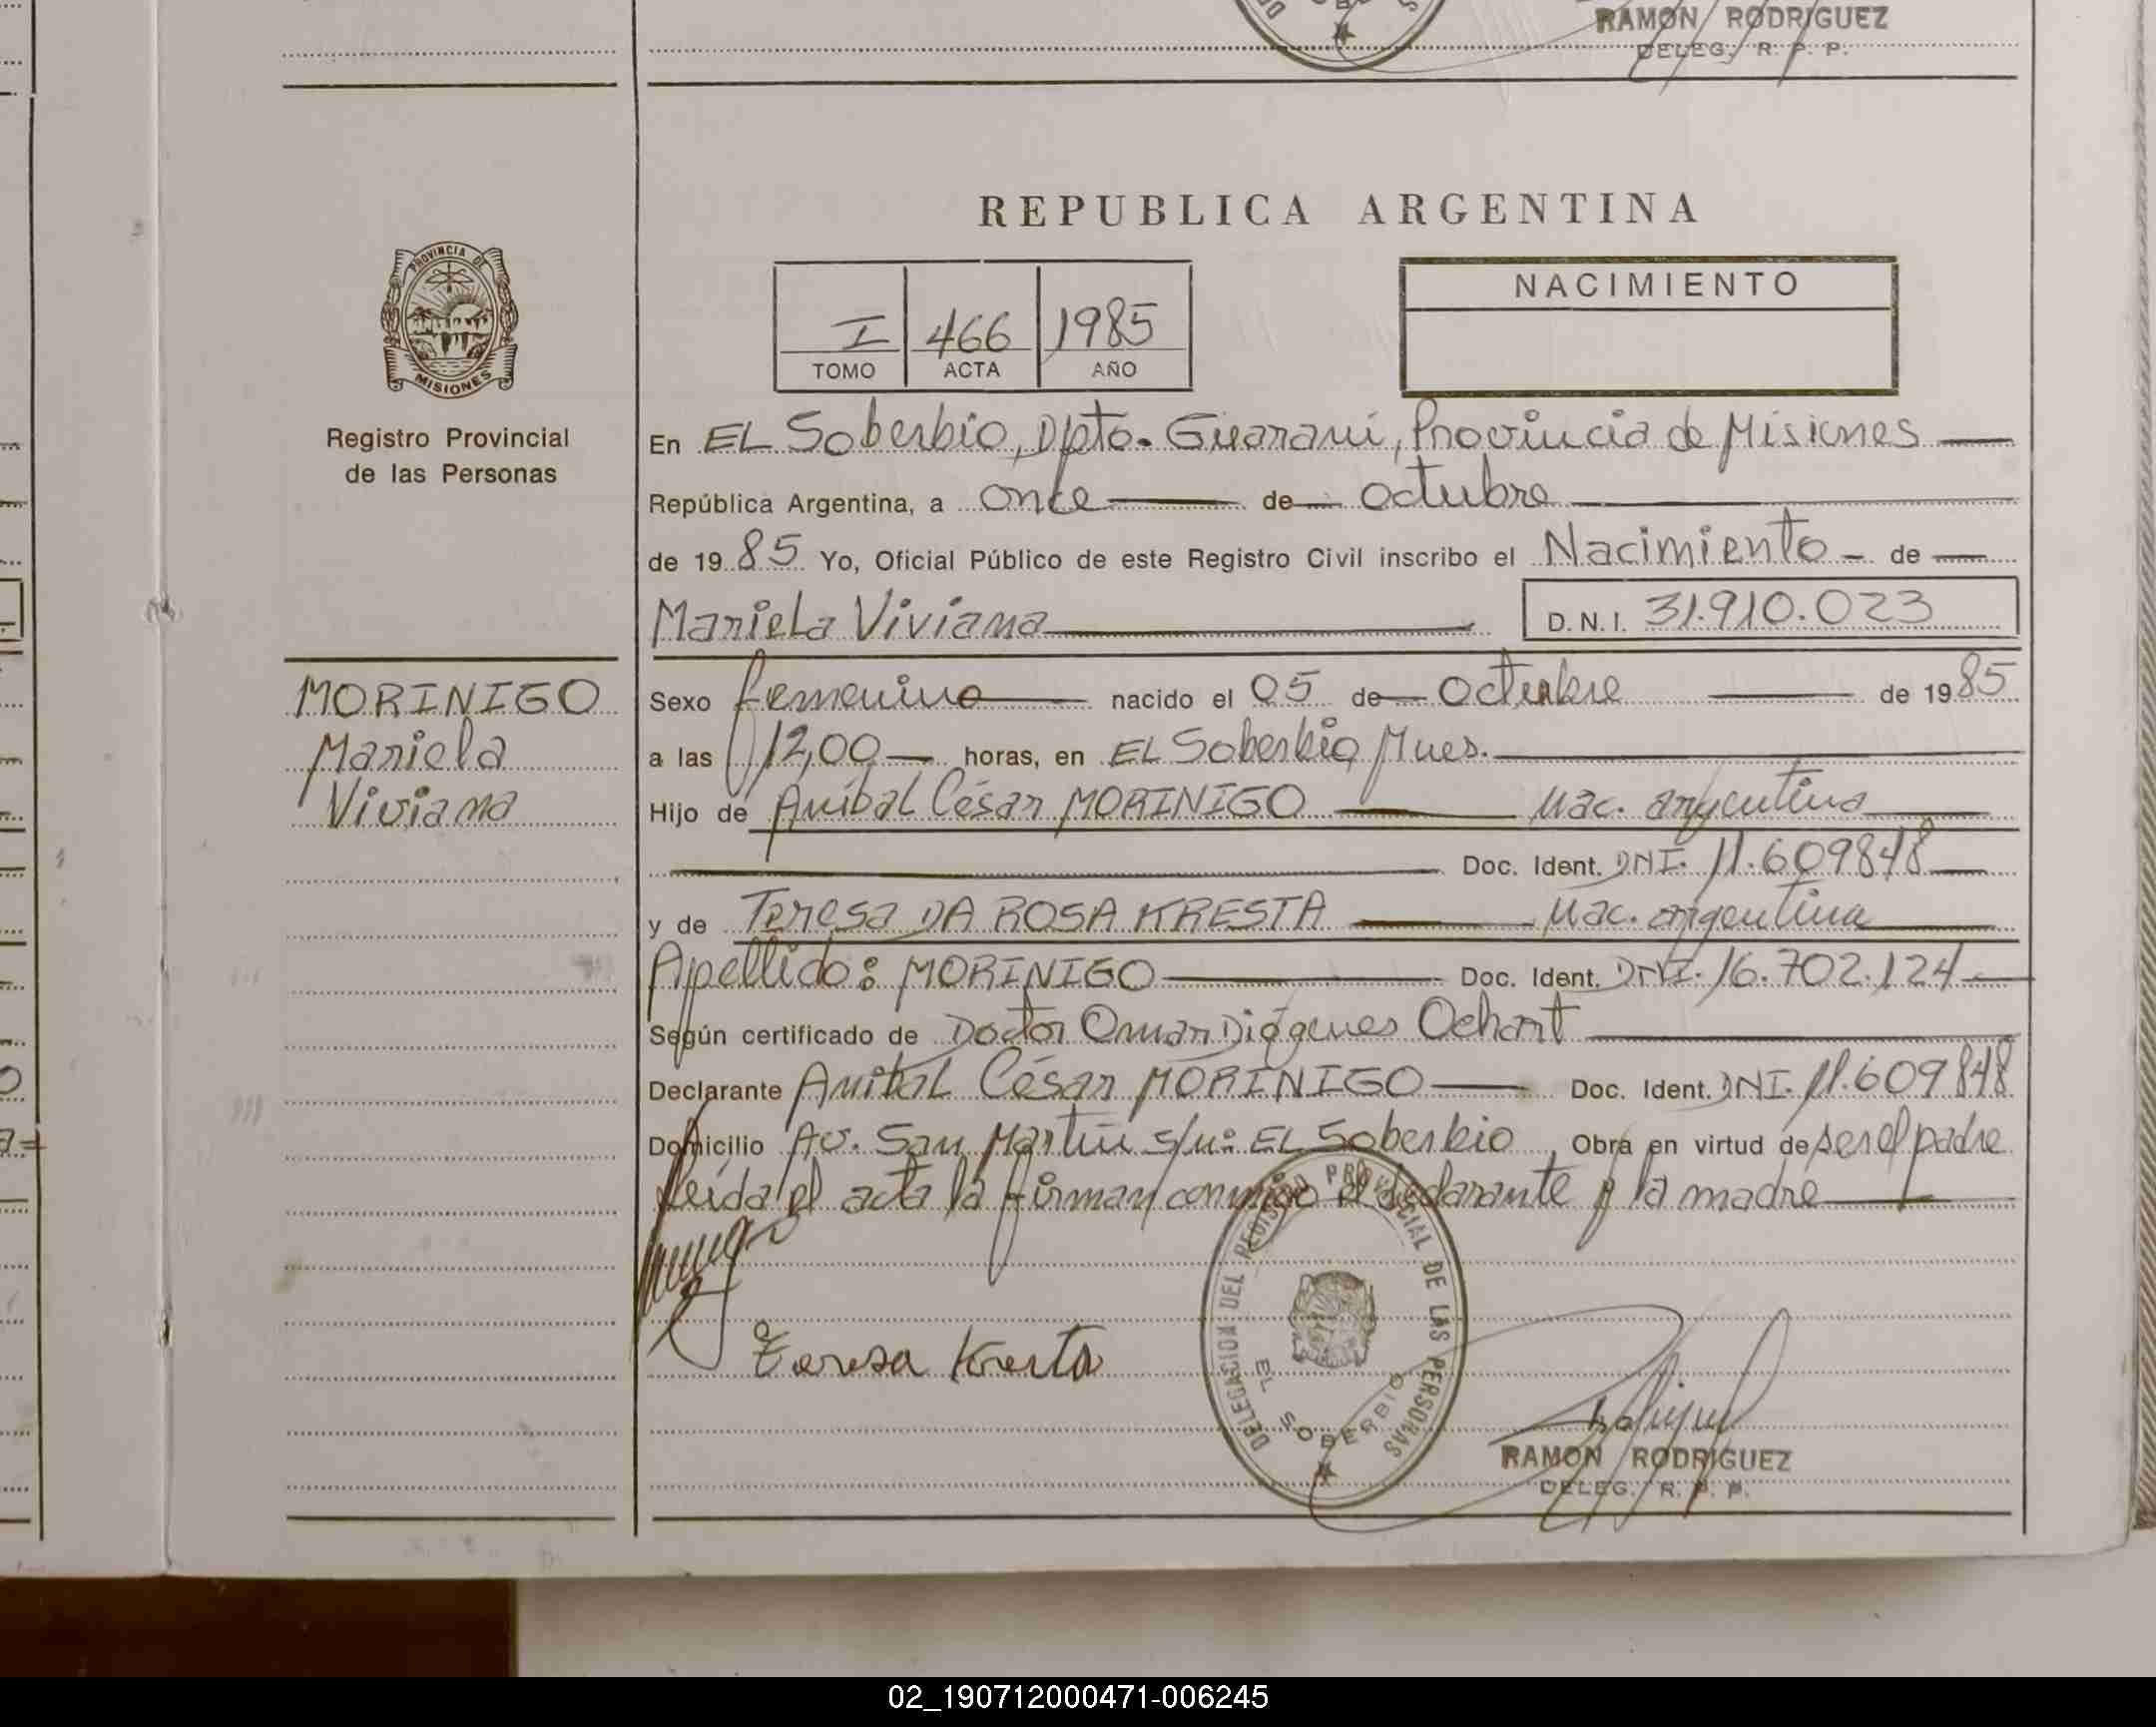 RAMON RODRIGUEZ
DELEG. R. P. P.
REPUBLICA ARGENTINA
PROVINCIA DE
MISIONES
Registro Provincial
de las Personas
I 466 1985
TOMO ACTA AÑO
NACIMIENTO
En EL Soberbio, Dpto. Guaraní, Provincia de Misiones
República Argentina, a once de octubre
de 1985 Yo, Oficial Público de este Registro Civil inscribo el Nacimiento de
Mariela Viviana D.N.I. 31.910.023
MORINIGO
Mariela
Viviana
Sexo femenino nacido el 05 de Octubre de 1985
a las 12,00 horas, en EL Soberbio Mnes.
Hijo de Aníbal César MORINIGO Nac. argentina
Doc. Ident. DNI. 11.609848
y de Teresa DA ROSA KRESTA Nac. argentina
Apellido: MORINIGO Doc. Ident. DNI. 16.702.124
Según certificado de Doctor Omar Diógenes Ochart
Declarante Anibal César MORINIGO Doc. Ident. DNI. 11.609848
Domicilio Av. San Martín s/n: EL Soberbio, Obra en virtud de ser el padre
leída el acta la firman conmigo el declarante y la madre
Teresa Kresta
DELEGACION DEL REGISTRO PROVINCIAL DE LAS PERSONAS
EL SOBERBIO
RAMON RODRIGUEZ
DELEG. R. P. P.
02_190712000471-006245